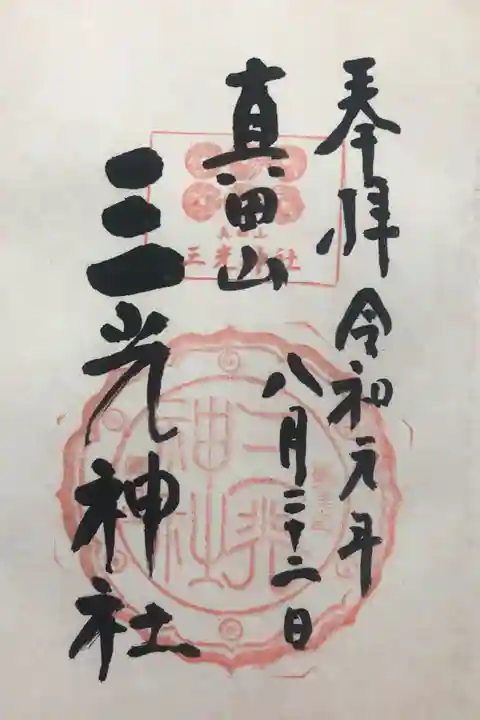 奉拝
令和元年
八月二十二日
真田山
三光神社
真田山
三光神社
三光神社